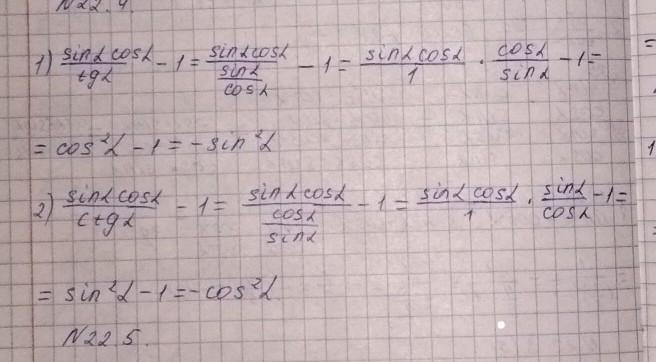 N22.4.
1) sinα cosα / tgα - 1 = sinα cosα / (sinα / cosα) - 1 = sinα cosα / 1 · cosα / sinα - 1 =
= cos²α - 1 = - sin²α
2) sinα cosα / ctgα - 1 = sinα cosα / (cosα / sinα) - 1 = sinα cosα / 1 · sinα / cosα - 1 =
= sin²α - 1 = - cos²α
N22 5.